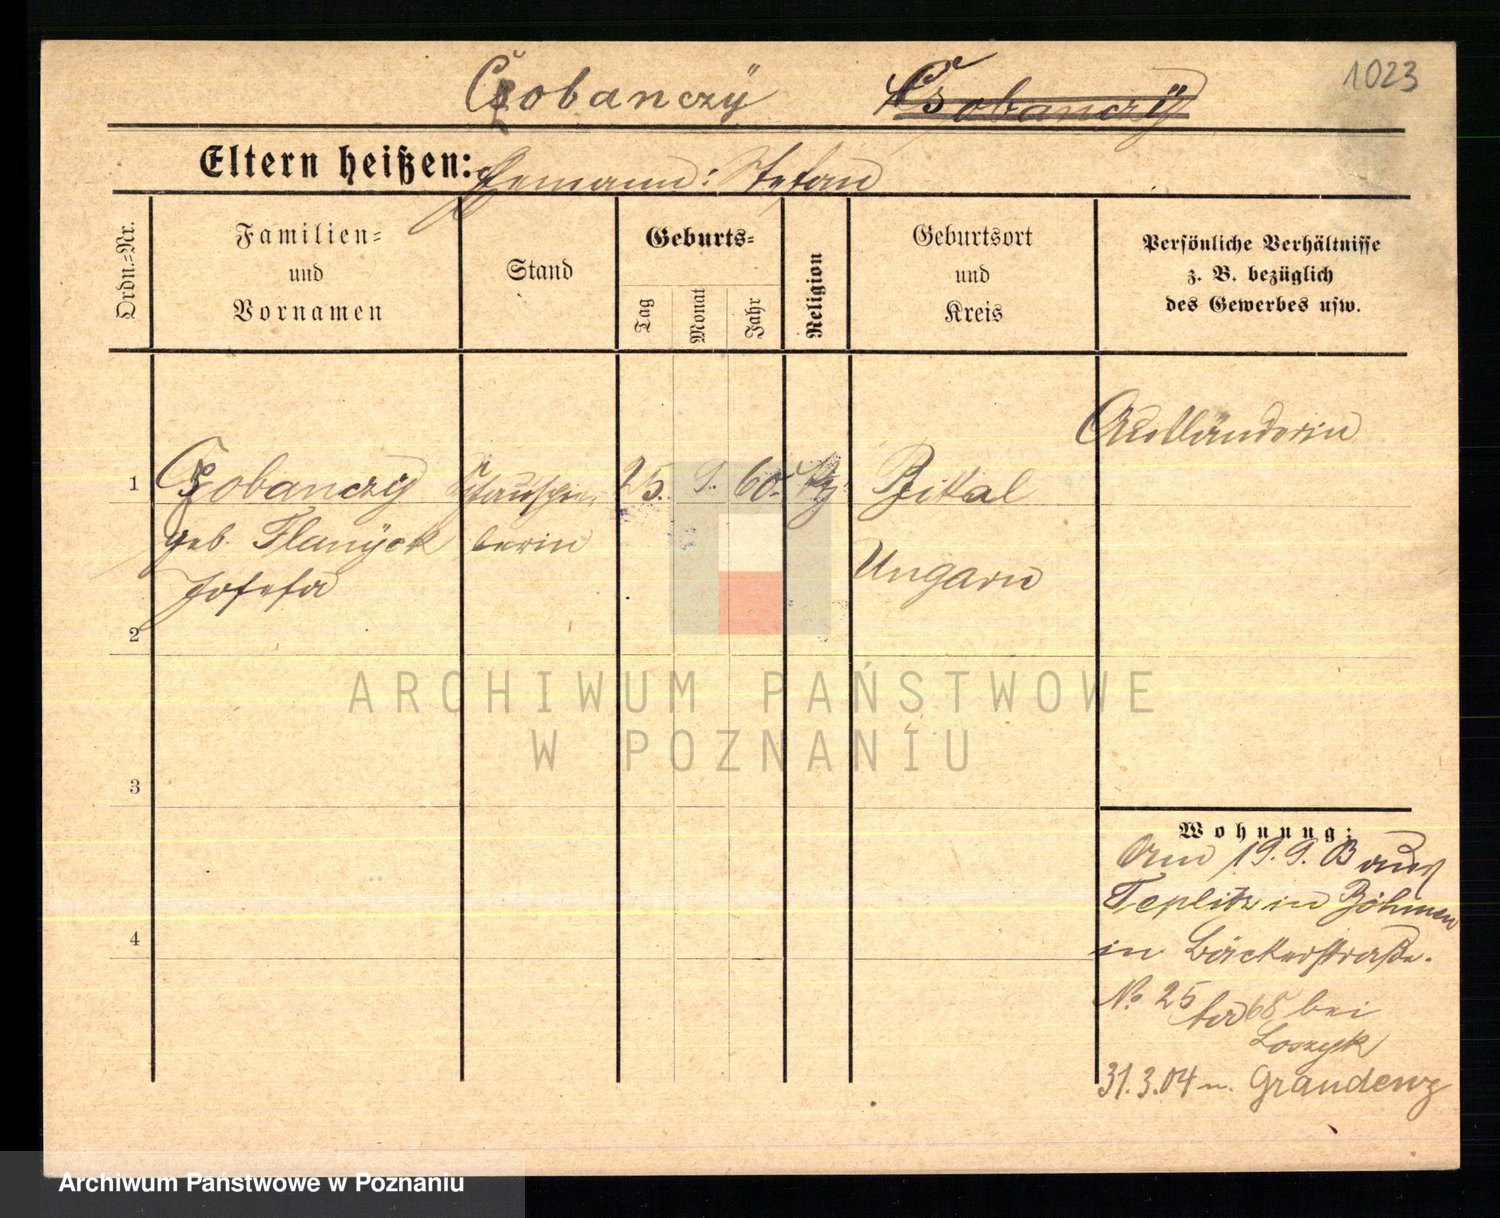 1023
Czobanczÿ Csobanczÿ
Eltern heißen: Ehemann: Stefan
Ordn.-Nr.
Familien- und Vornamen
Stand
Geburts-
Tag
Monat
Jahr
Religion
Geburtsort und Kreis
Persönliche Verhältnisse z. B. bezüglich des Gewerbes usw.
Ausländerin
1 Czobanczÿ 25. 9. 60. Bikal
geb. Flanÿek berin Ungarn
Josefa
2
3
4
Wohnung:
Am 19.9.03 aus
Teplitz in Böhmen
in Bäckerstraße.
No 25
bei
31.3.04 n. Graudenz
ARCHIWUM PAŃSTWOWE
W POZNANIU
Archiwum Państwowe w Poznaniu